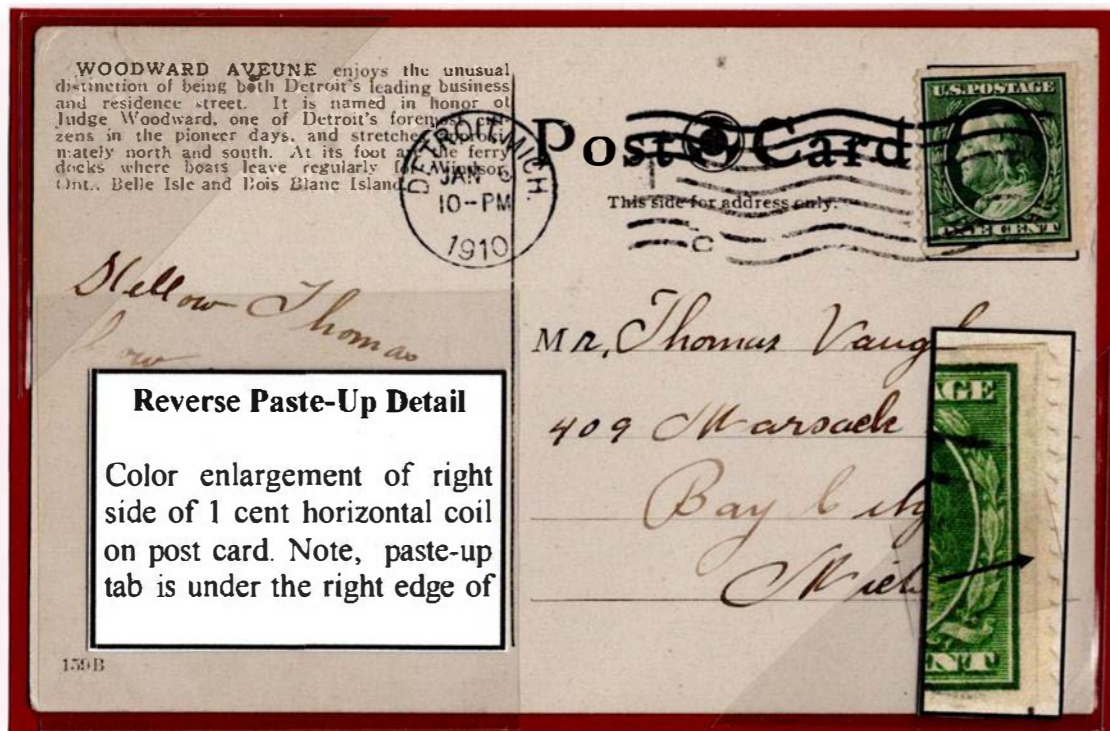 WOODWARD AVEUNE enjoys the unusual
distinction of being both Detroit's leading business
and residence street. It is named in honor of
Judge Woodward, one of Detroit's foremost citi-
zens in the pioneer days, and stretches approxi-
mately north and south. At its foot are the ferry
docks where boats leave regularly for Windsor,
Ont., Belle Isle and Bois Blanc Island.
DETROIT, MICH.
JAN
10-PM
1910
Post Card
This side for address only.
U.S.POSTAGE
ONE CENT
Hellow Thomas
how
Mr. Thomas Vaug
409 Marsack
Bay City
Mich
Reverse Paste-Up Detail
Color enlargement of right
side of 1 cent horizontal coil
on post card. Note, paste-up
tab is under the right edge of
AGE
NT
159B